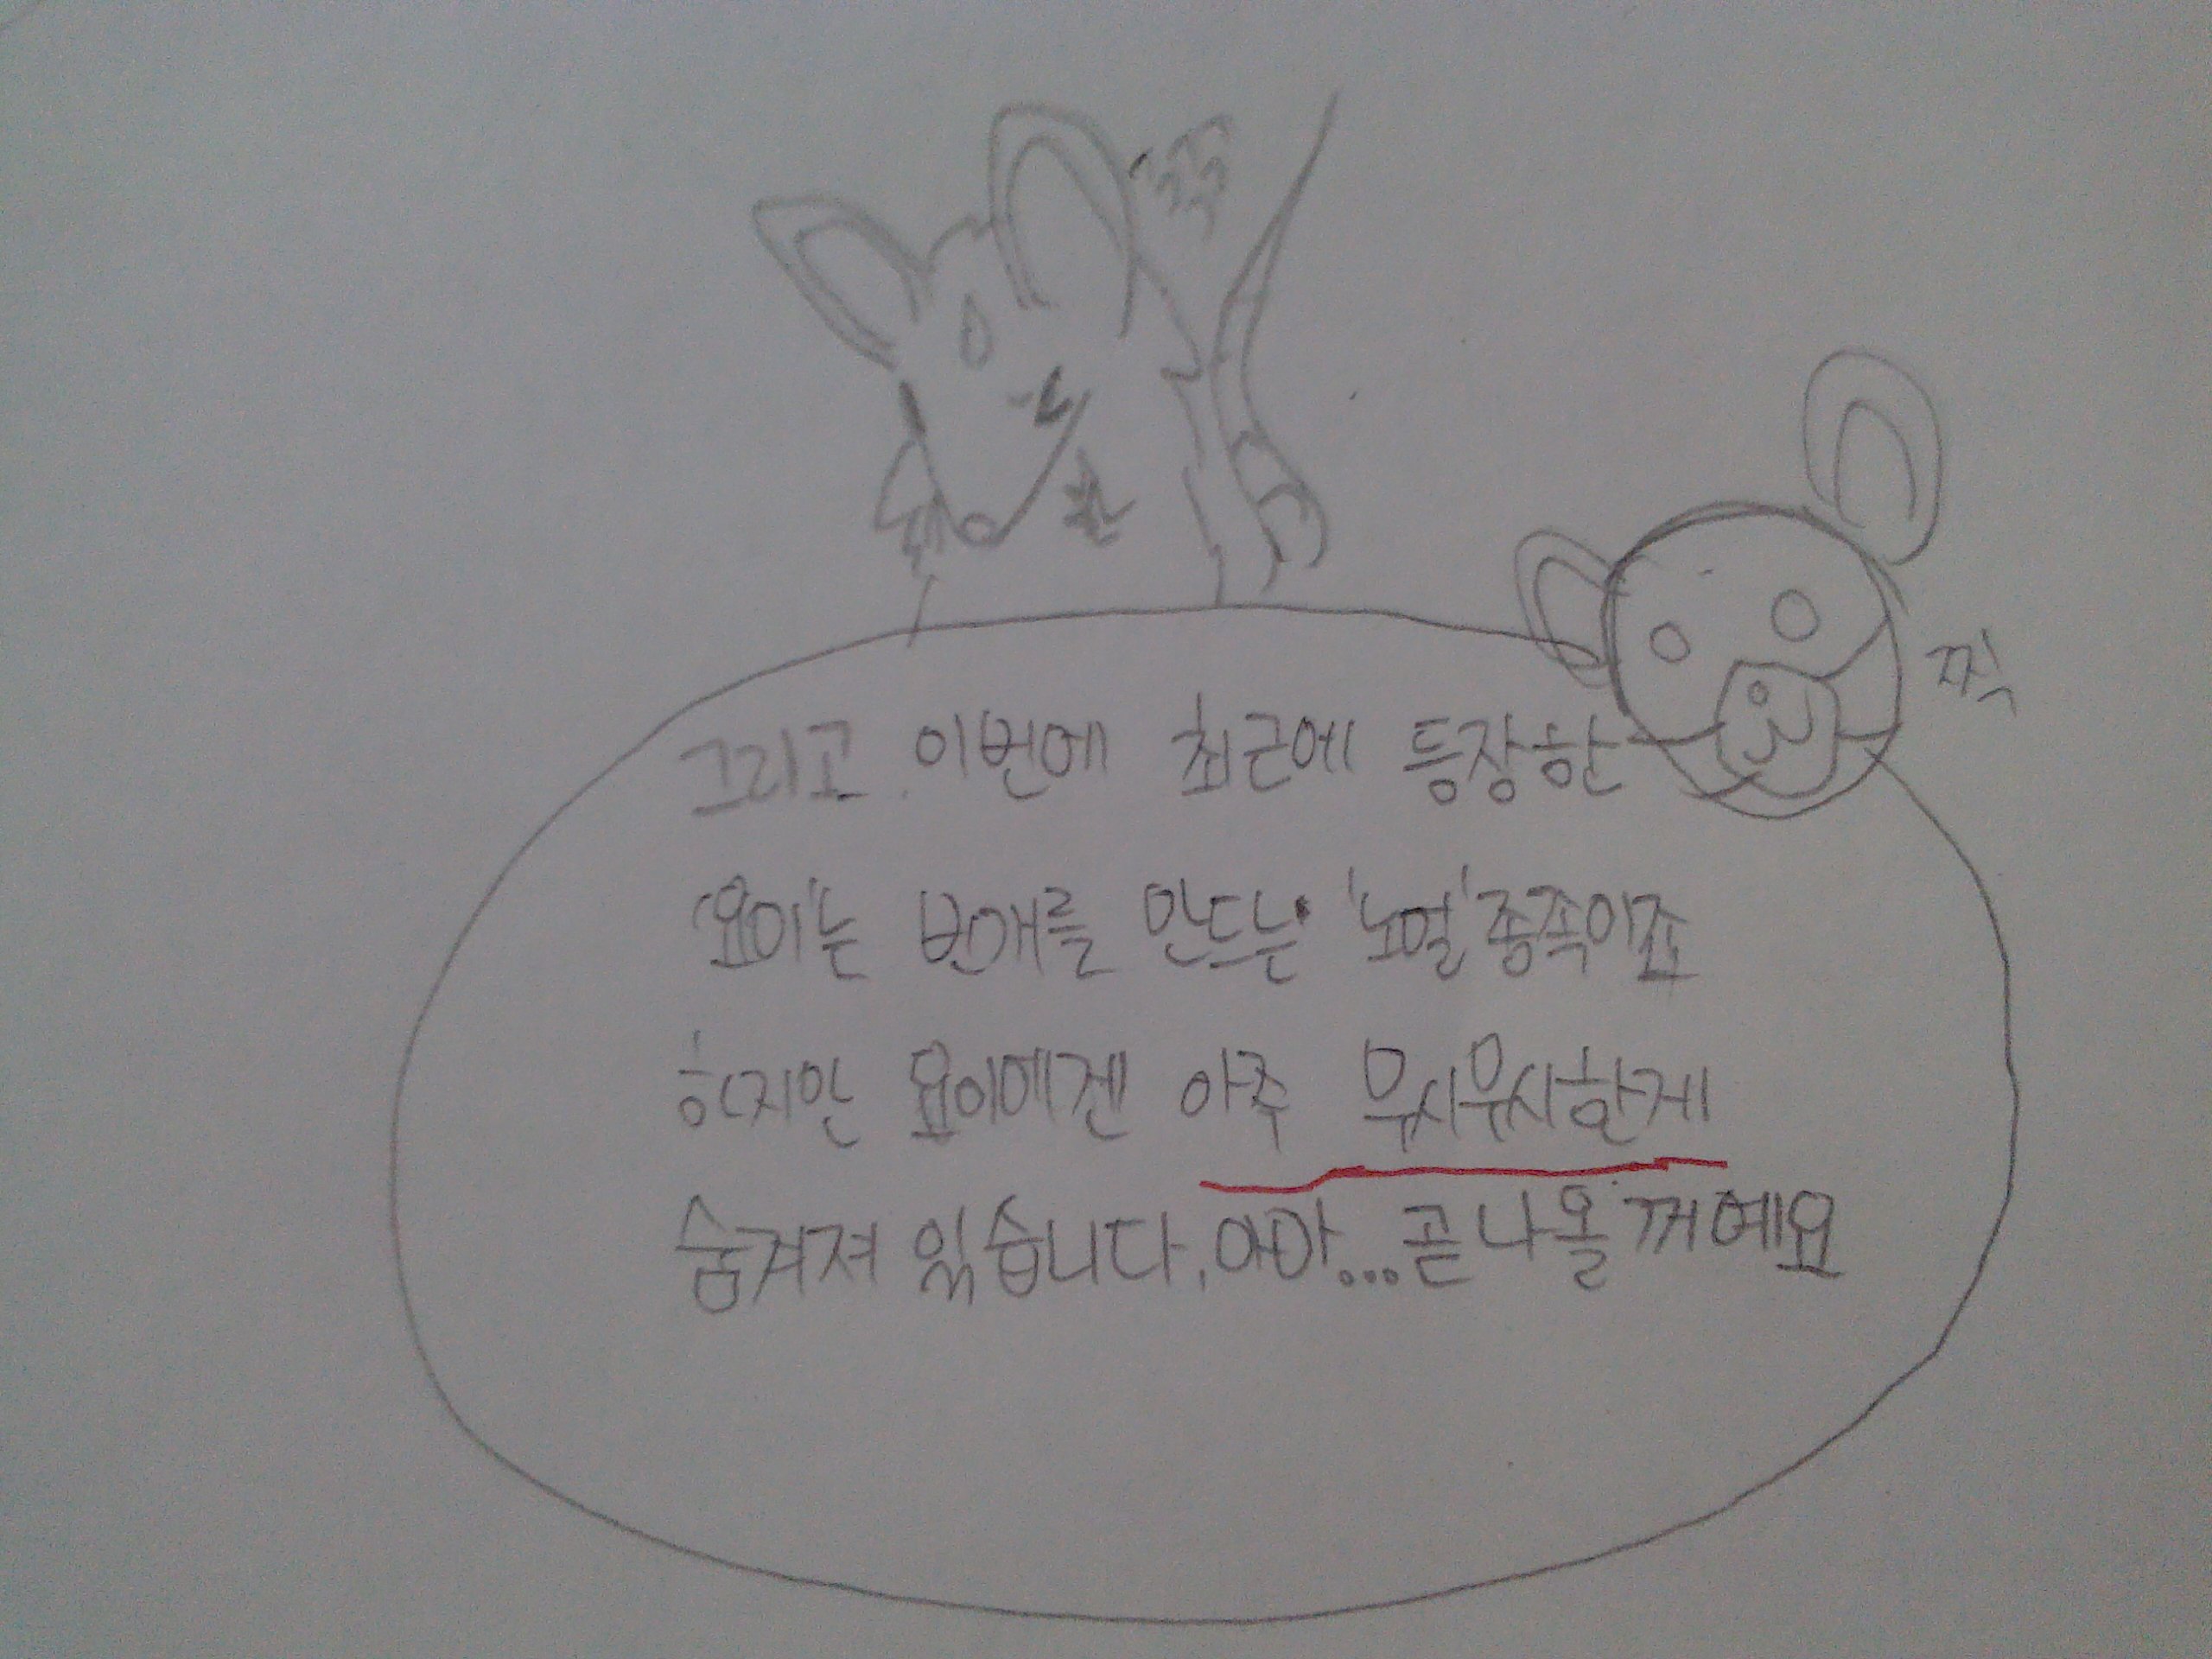 찍
그리고. 이번에 최근에 등장한
'요이'는 번개를 만드는 '뇌열'종족이죠
하지만 요이에겐 아주 무시무시한게
숨겨져 있습니다. 아마... 곧 나올꺼예요